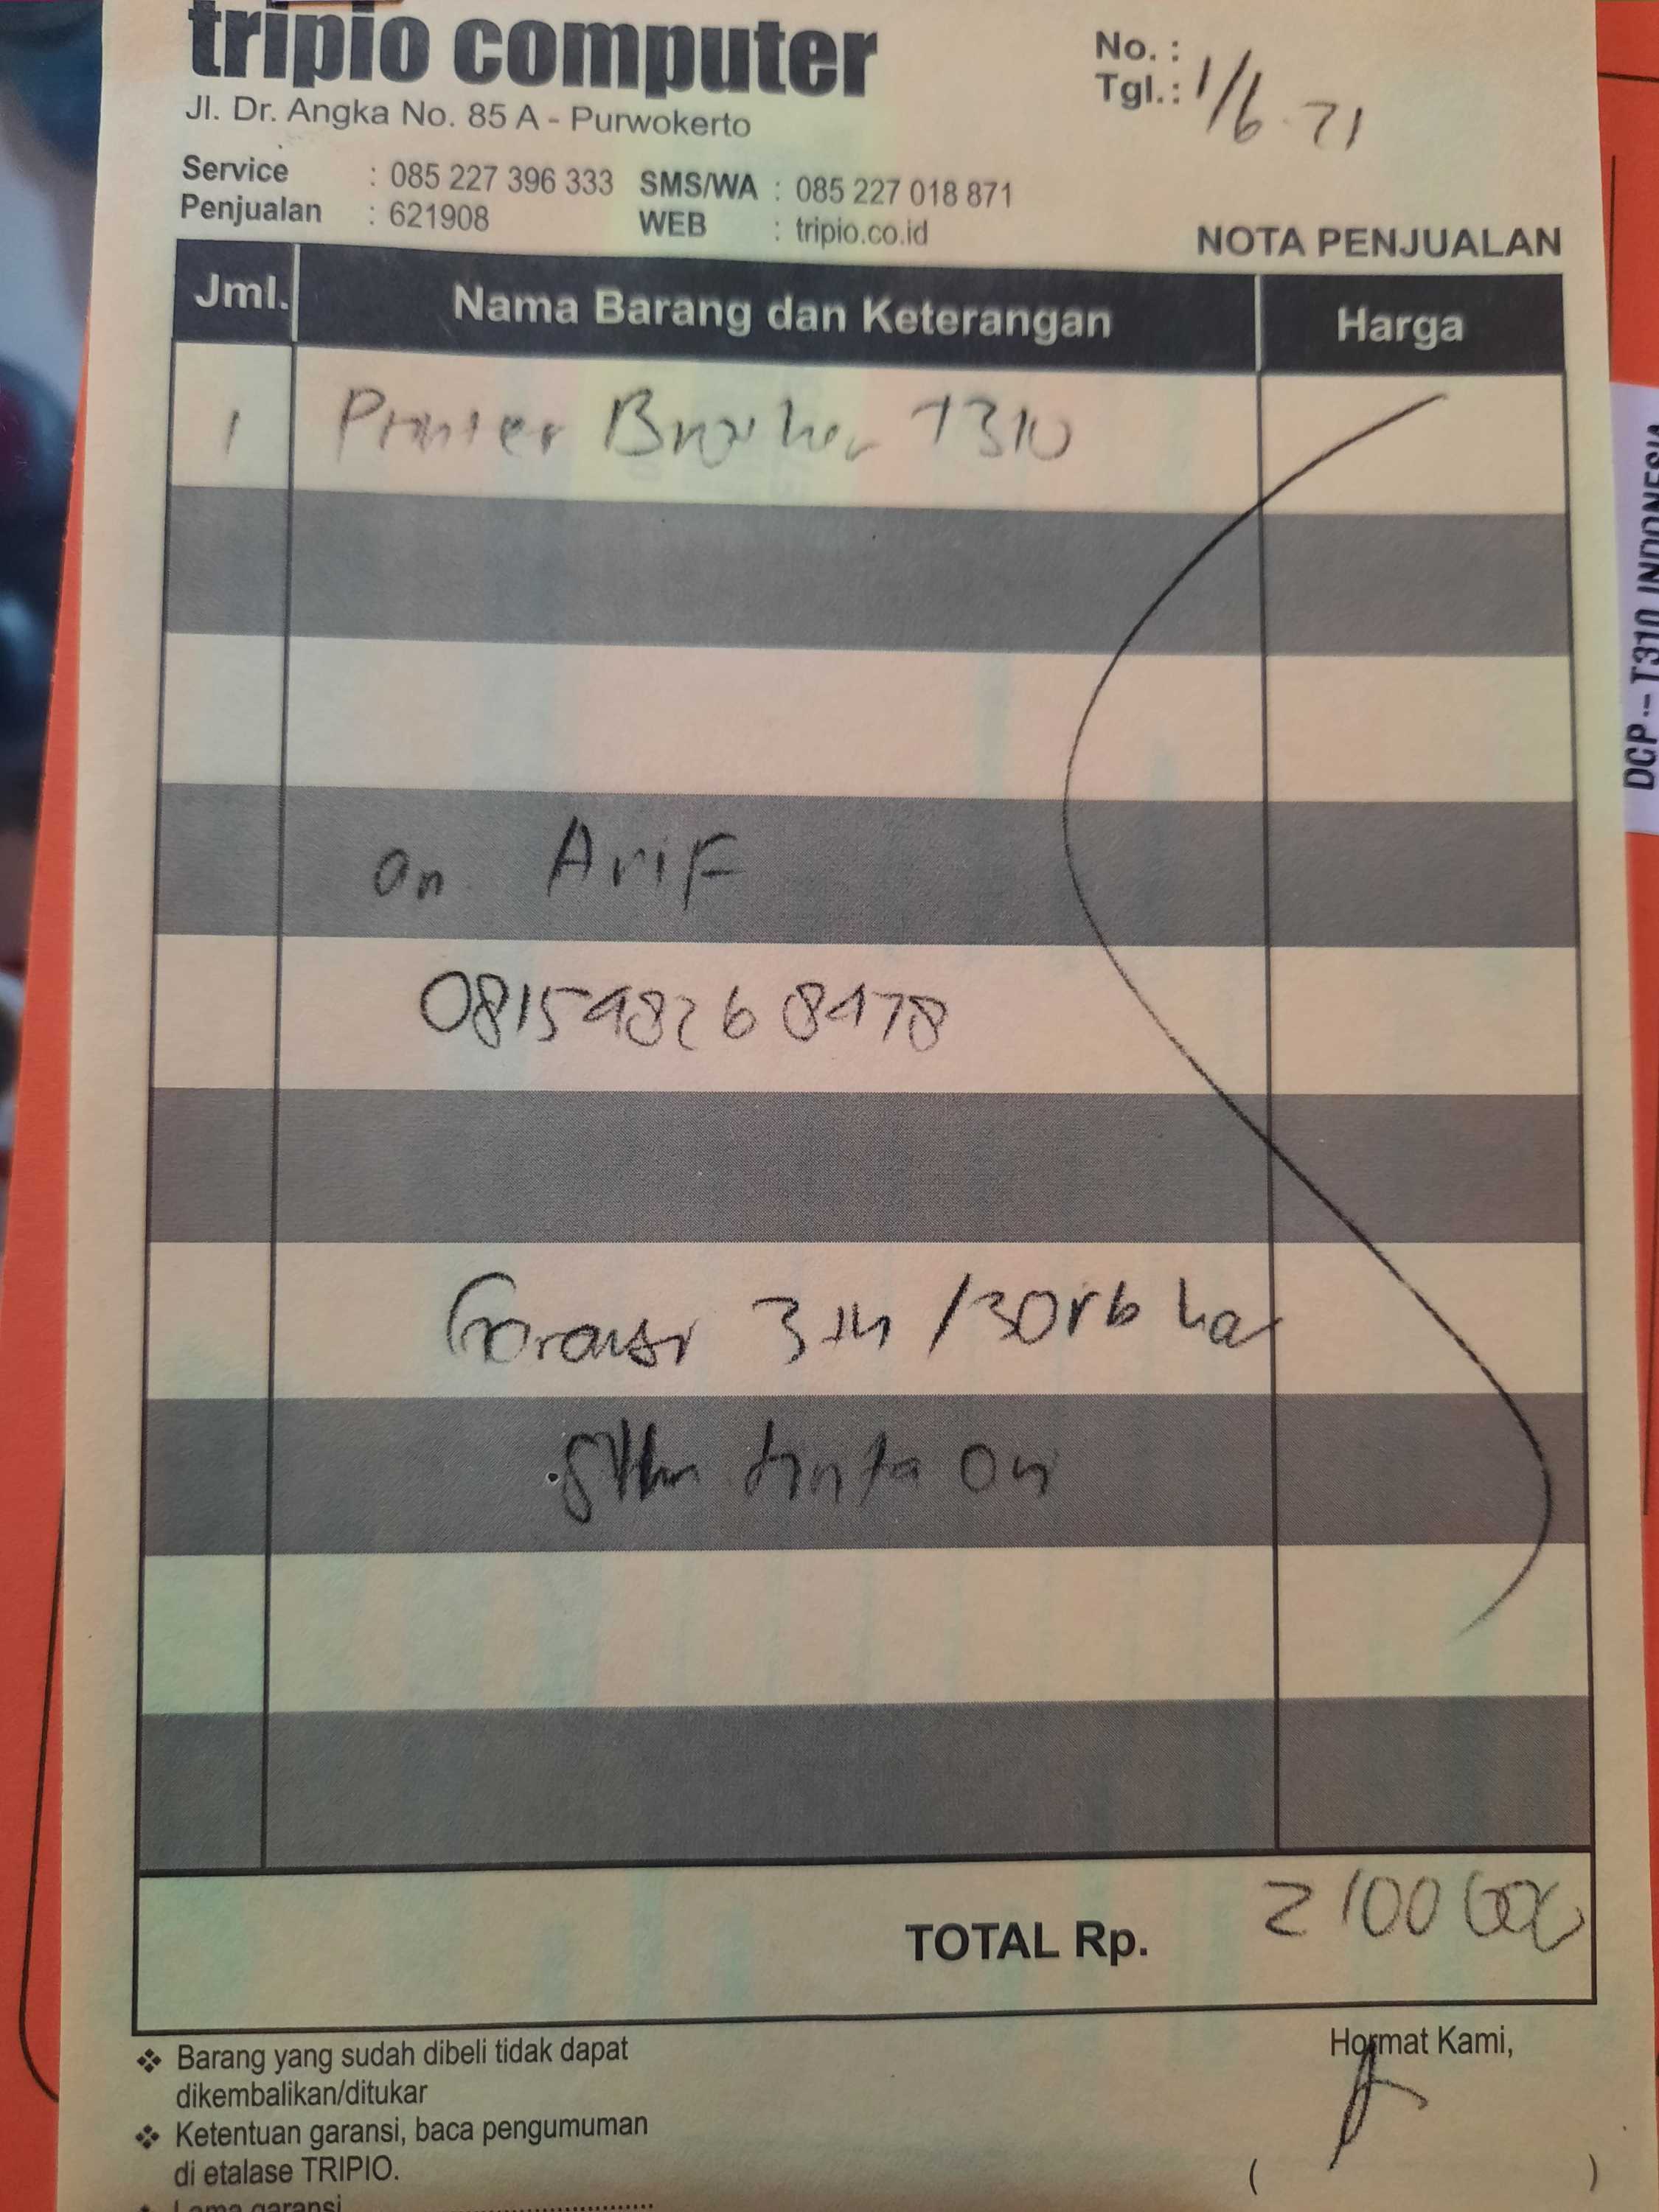 tripio computer
Jl. Dr. Angka No. 85 A - Purwokerto
No. :
Tgl.: 1/6 21
Service : 085 227 396 333 SMS/WA : 085 227 018 871
Penjualan : 621908 WEB : tripio.co.id
NOTA PENJUALAN
Jml. Nama Barang dan Keterangan Harga
1 Printer Brother T310
an Arif
Garansi 3 th /30rb hal
tinta ori
TOTAL Rp. 2100 000
Barang yang sudah dibeli tidak dapat
dikembalikan/ditukar
Ketentuan garansi, baca pengumuman
di etalase TRIPIO.
Lama garansi
Hormat Kami,
( )
DCP - T310 INDONESIA